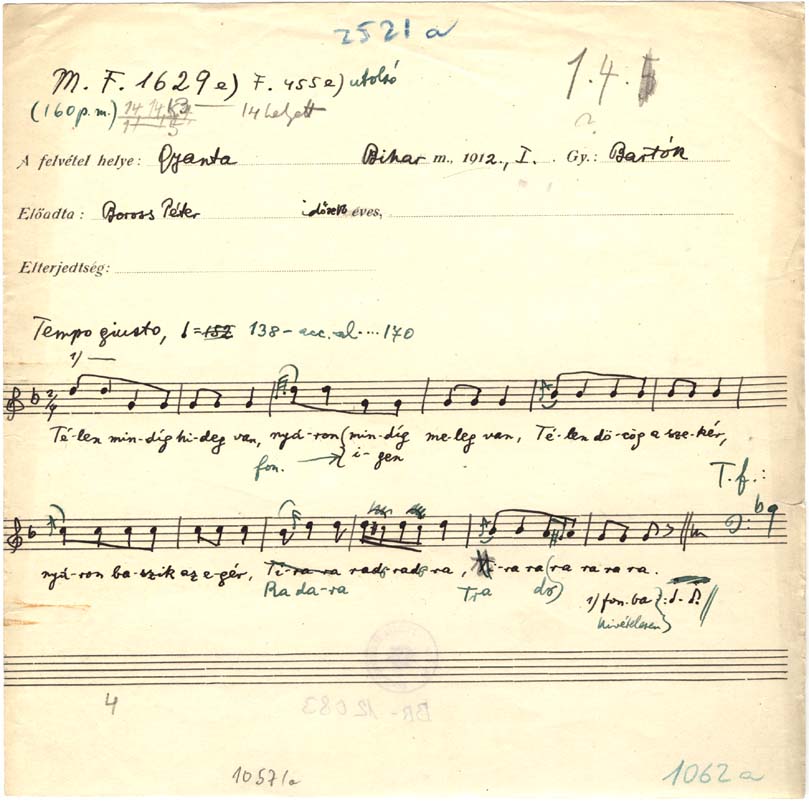 2521a
M. F. 1629 e) F. 455 e) utolsó
1. 4.
(160 p. m.) 14 helyett
?
A felvétel helye: Gyanta Bihar m., 1912., I. Gy.: Bartók
Előadta: Boross Péter idősebb éves,
Elterjedtség:
Tempo giusto, ♩= 152 138 – acc. al ... 170
1) —
Té-len min-díg hi-deg van, nyá-ron (min-díg me-leg van, Té-len dö-cög a sze-kér,
fon. → i-gen
T. f.:
nyá-ron ba-szik az e-gér, Ti-ra-ra rada rada ra, ra ra ra ra ra ra.
Ra da-ra Tra dá)
1) fon.-ba
kivételesen
4
BR-12083
10571a
1062a